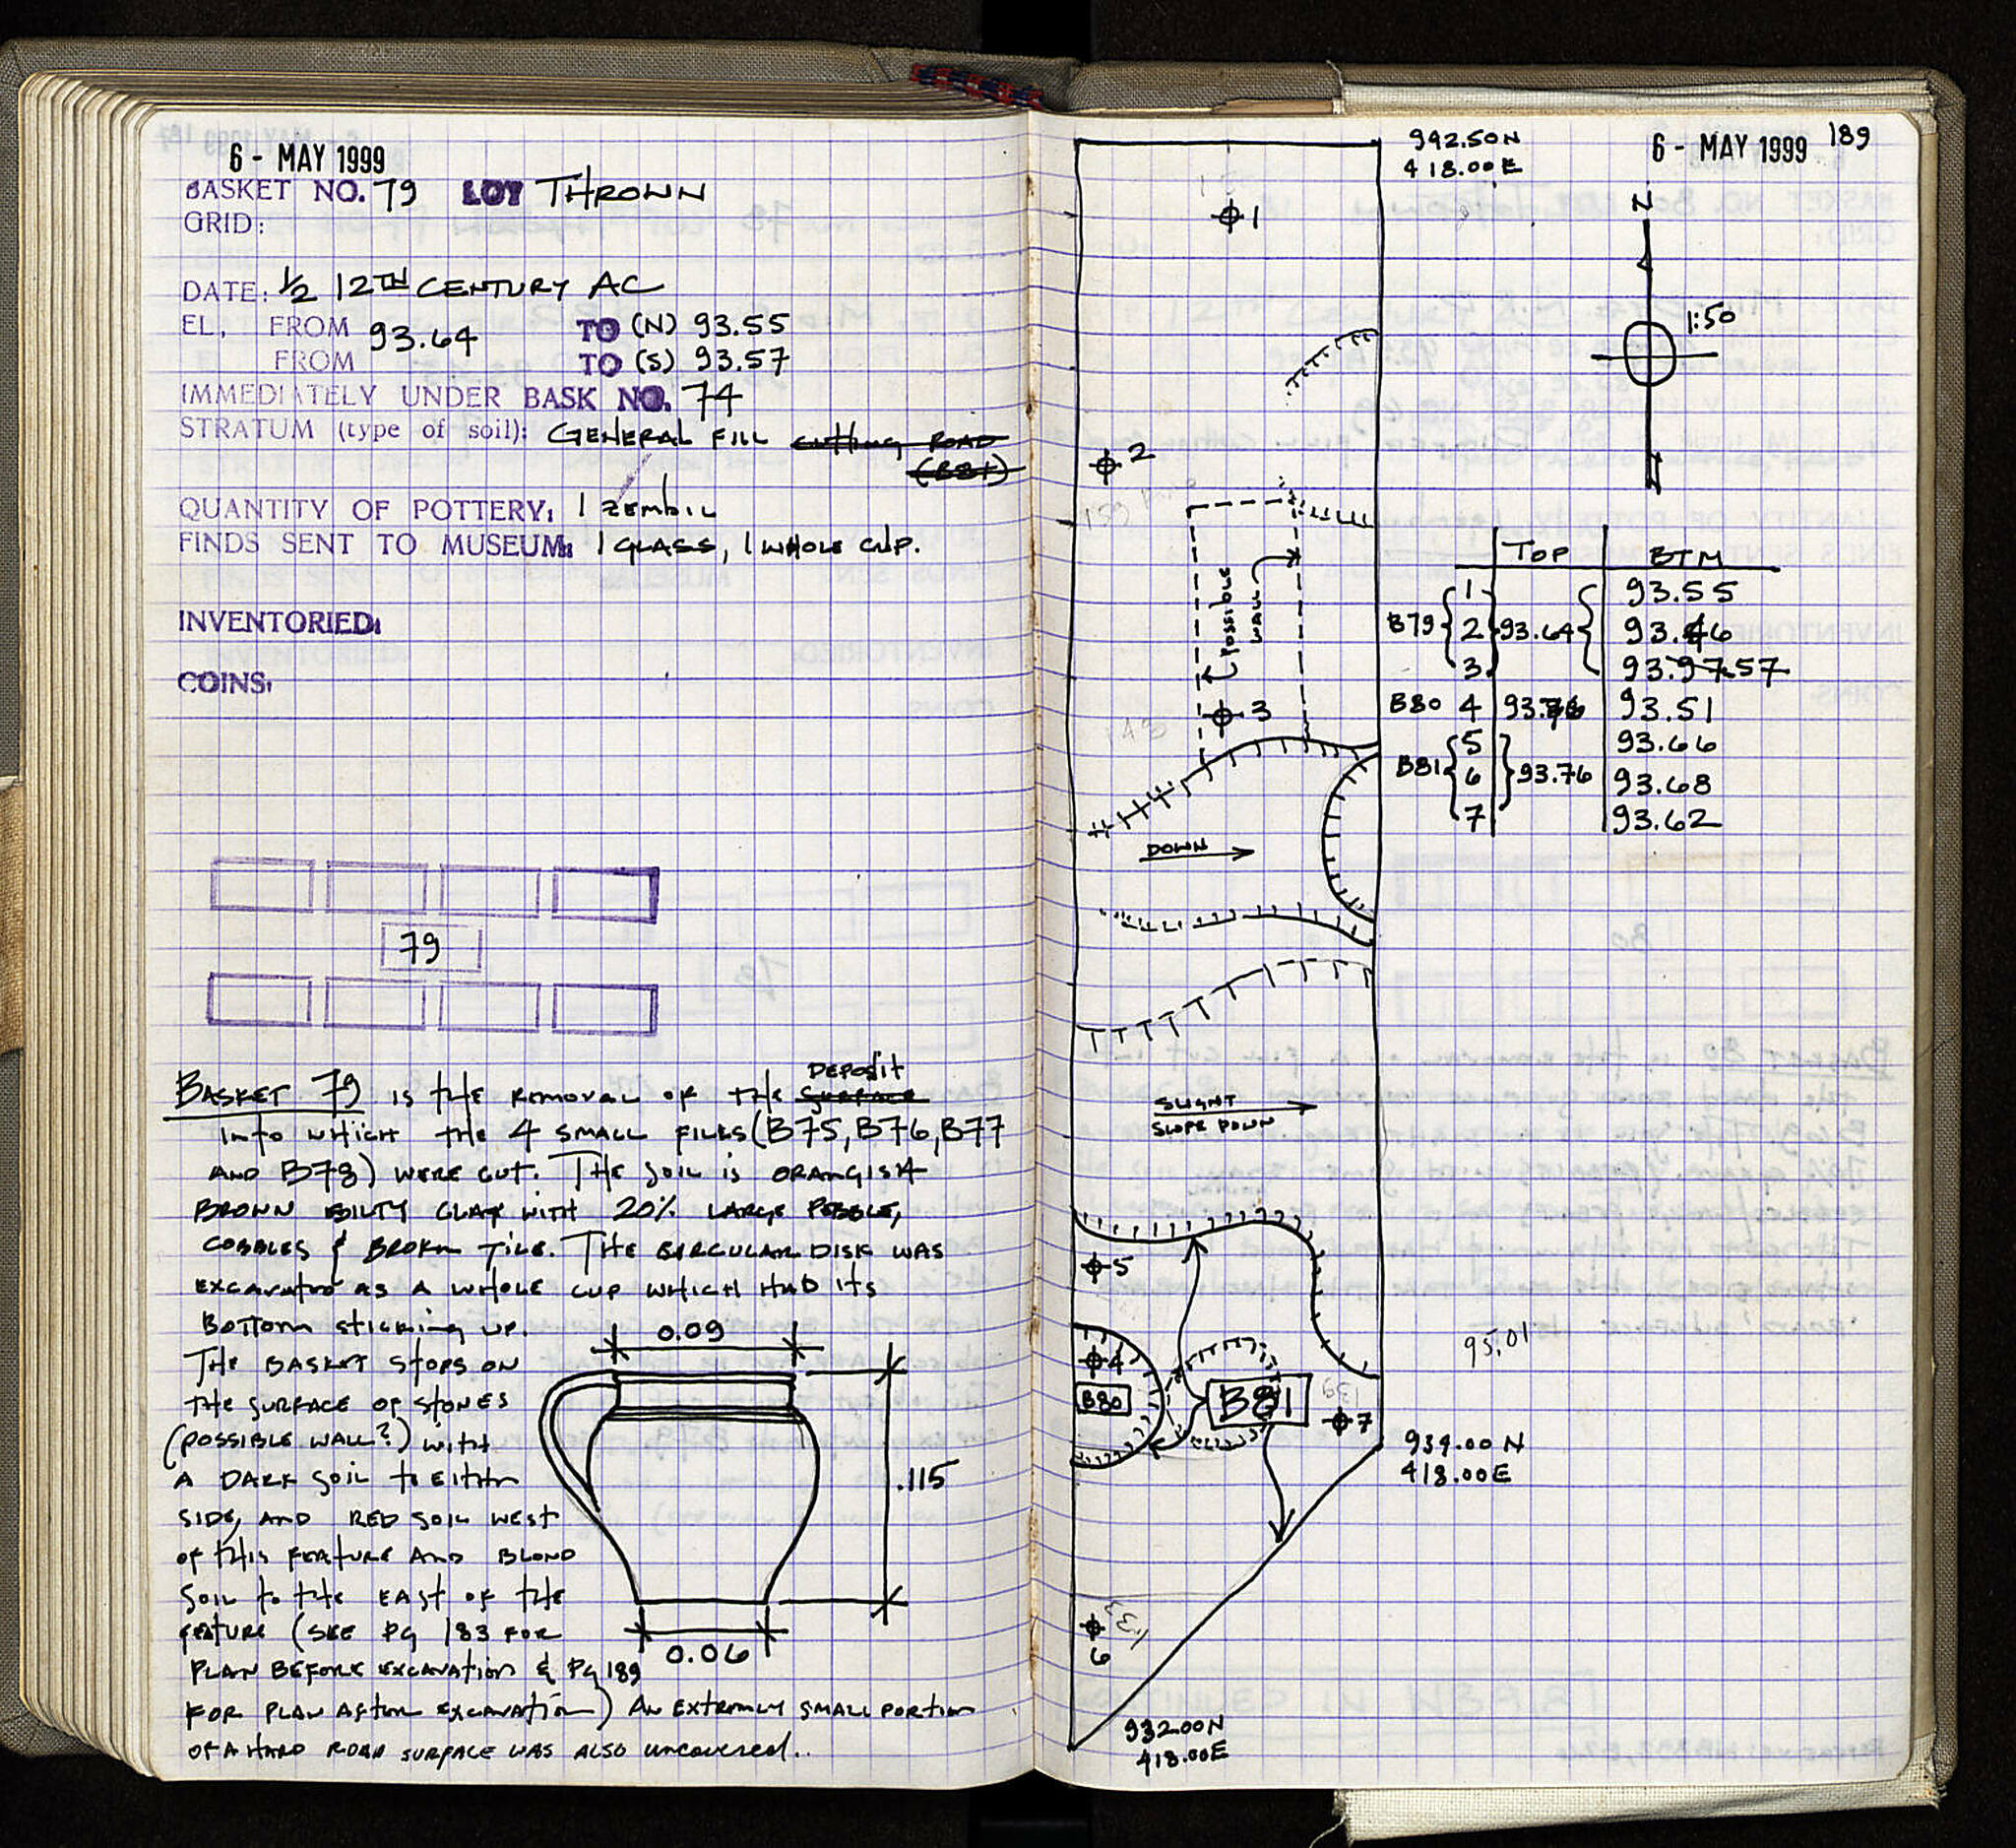 6 - MAY 1999
BASKET NO. 79 LOT THROWN
GRID:
DATE: 1/2 12TH CENTURY AC
EL, FROM 93.64 TO (N) 93.55
FROM TO (S) 93.57
IMMEDIATELY UNDER BASK NO. 74
STRATUM (type of soil): GENERAL FILL cutting ROAD
(B81)
QUANTITY OF POTTERY: 1 zembil
FINDS SENT TO MUSEUM: 1 GLASS, 1 WHOLE CUP.
INVENTORIED:
COINS:
79
BASKET 79 is the REMOVAL OF THE SURFACE DEPOSIT
INTO WHICH THE 4 SMALL FILLS (B75, B76, B77
AND B78) WERE CUT. THE SOIL IS ORANGISH
BROWN SILTY CLAY WITH 20% LARGE PEBBLE,
COBBLES & BROKEN TILE. THE CIRCULAR DISK WAS
EXCAVATED AS A WHOLE CUP WHICH HAD ITS
BOTTOM STICKING UP.
THE BASKET STOPS ON
THE SURFACE OF STONES
(POSSIBLE WALL?) WITH
A DARK SOIL TO EITHER
SIDE, AND RED SOIL WEST
OF THIS FEATURE AND BLOND
SOIL TO THE EAST OF THE
FEATURE (SEE PG 183 FOR
PLAN BEFORE EXCAVATION & PG 189
FOR PLAN AFTER EXCAVATION) AN EXTREMLY SMALL PORTION
OF A HARD ROAD SURFACE WAS ALSO UNCOVERED..
0.09
.115
0.06
189
6 - MAY 1999
942.50N
418.00E
N
1:50
1
2
POSSIBLE
WALL
3
TOP BTM
B79 1 93.64 93.55
2 93.46
3 93.97 .57
B80 4 93.76 93.51
B81 5 93.76 93.66
6 93.68
7 93.62
DOWN
SLIGHT
SLOPE DOWN
5
4
B80
B81
7
139
95.01
934.00N
418.00E
6
133
932.00N
418.00E